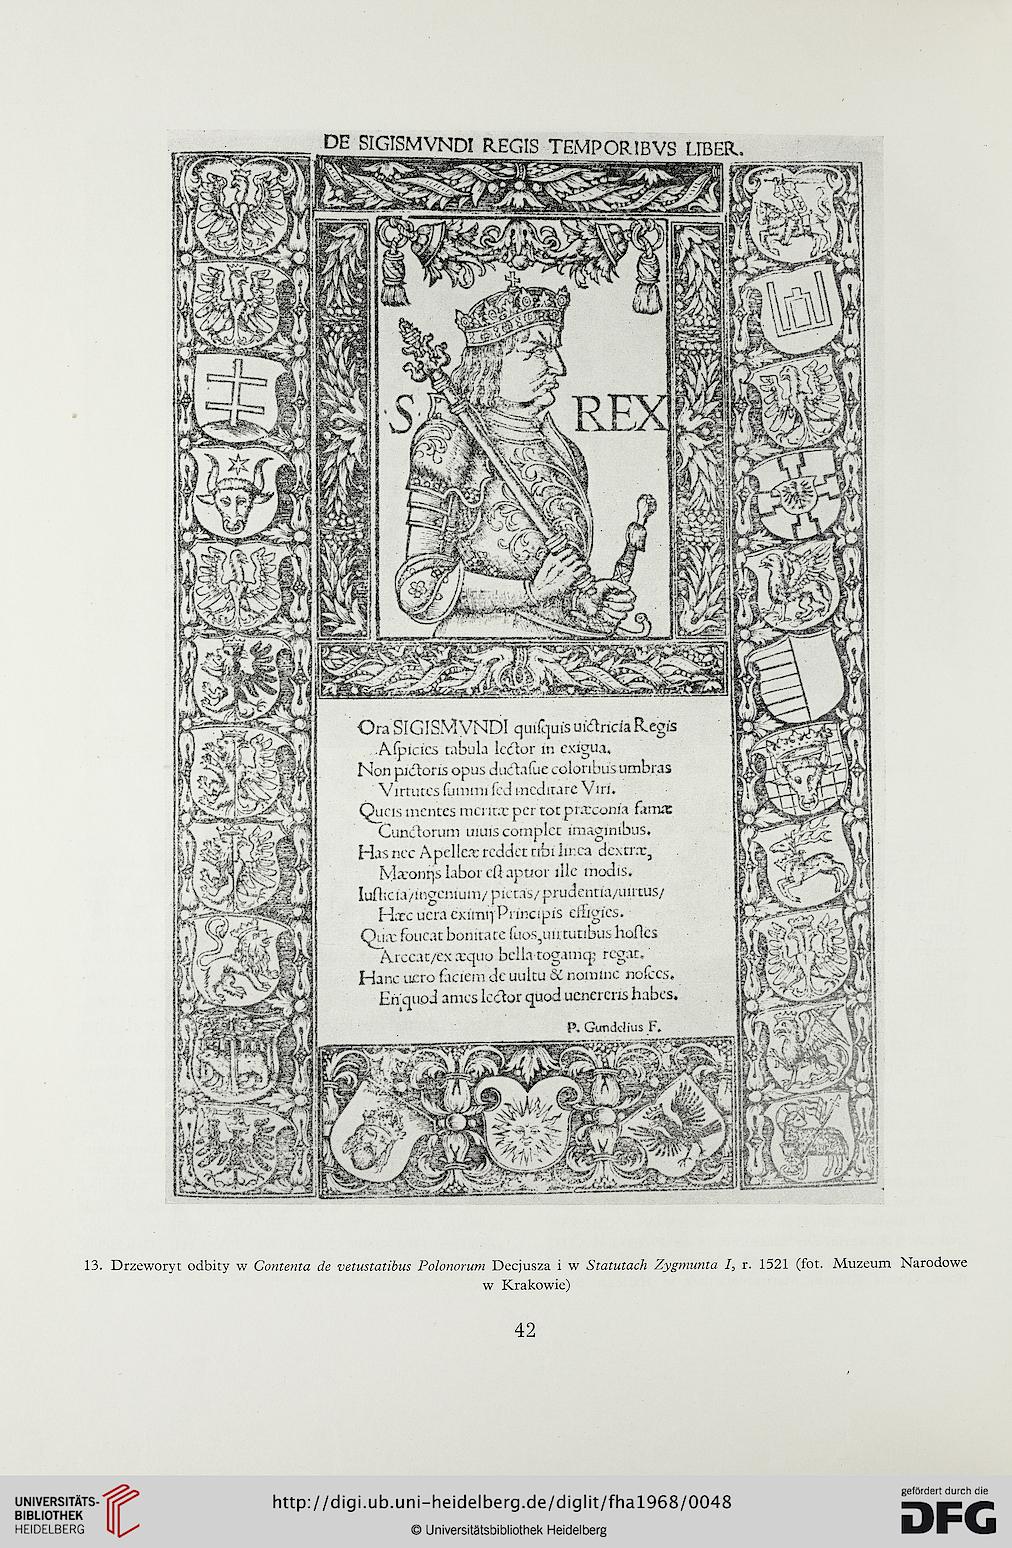 DE SIGISMVNDI REGIS TEMPORIBVS LIBER.
S REX
Ora SIGISMVNDI quiſquis uictricia Regis
Aſpicies tabula lector in exigua,
Non pictoris opus ductaſue coloribus umbras
Virtutes ſummi ſed meditare Viri.
Queis mentes meritæ per tot præconia famæ
Cunctorum uiuis complet imaginibus.
Has nec Apelleæ reddet tibi linea dextræ,
Mæonijs labor eſt aptior ille modis.
Iuſticia/ingenium/pietas/prudentia/uirtus/
Hæc uera eximij Principis effigies.
Quæ foueat bonitate ſuos, uirtutibus hoſtes
Arceat/ex æquo bella togamq; regat.
Hanc uero faciem de uultu & nomine noſces.
En quod ames lector quod uenereris habes.
P. Gundelius F.
13. Drzeworyt odbity w Contenta de vetustatibus Polonorum Decjusza i w Statutach Zygmunta I, r. 1521 (fot. Muzeum Narodowe
w Krakowie)
42
UNIVERSITÄTS-
BIBLIOTHEK
HEIDELBERG
http://digi.ub.uni-heidelberg.de/diglit/fha1968/0048
© Universitätsbibliothek Heidelberg
gefördert durch die
DFG